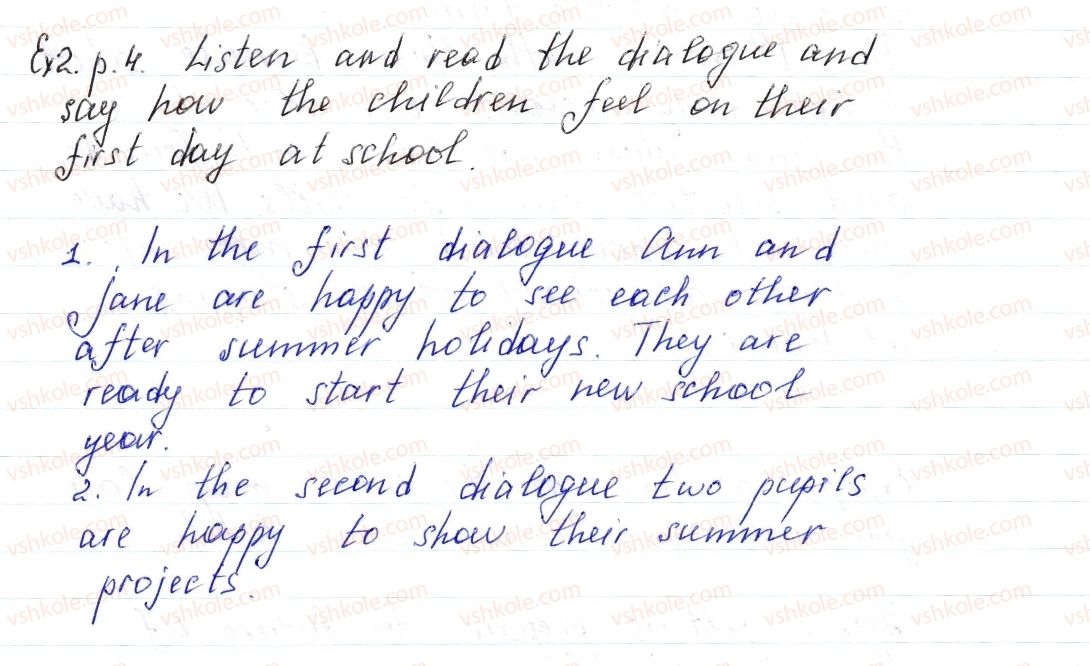 Ex2. p.4. Listen and read the dialogue and
say how the children feel on their
first day at school.
1. In the first dialogue Ann and
Jane are happy to see each other
after summer holidays. They are
ready to start their new school
year.
2. In the second dialogue two pupils
are happy to show their summer
projects.